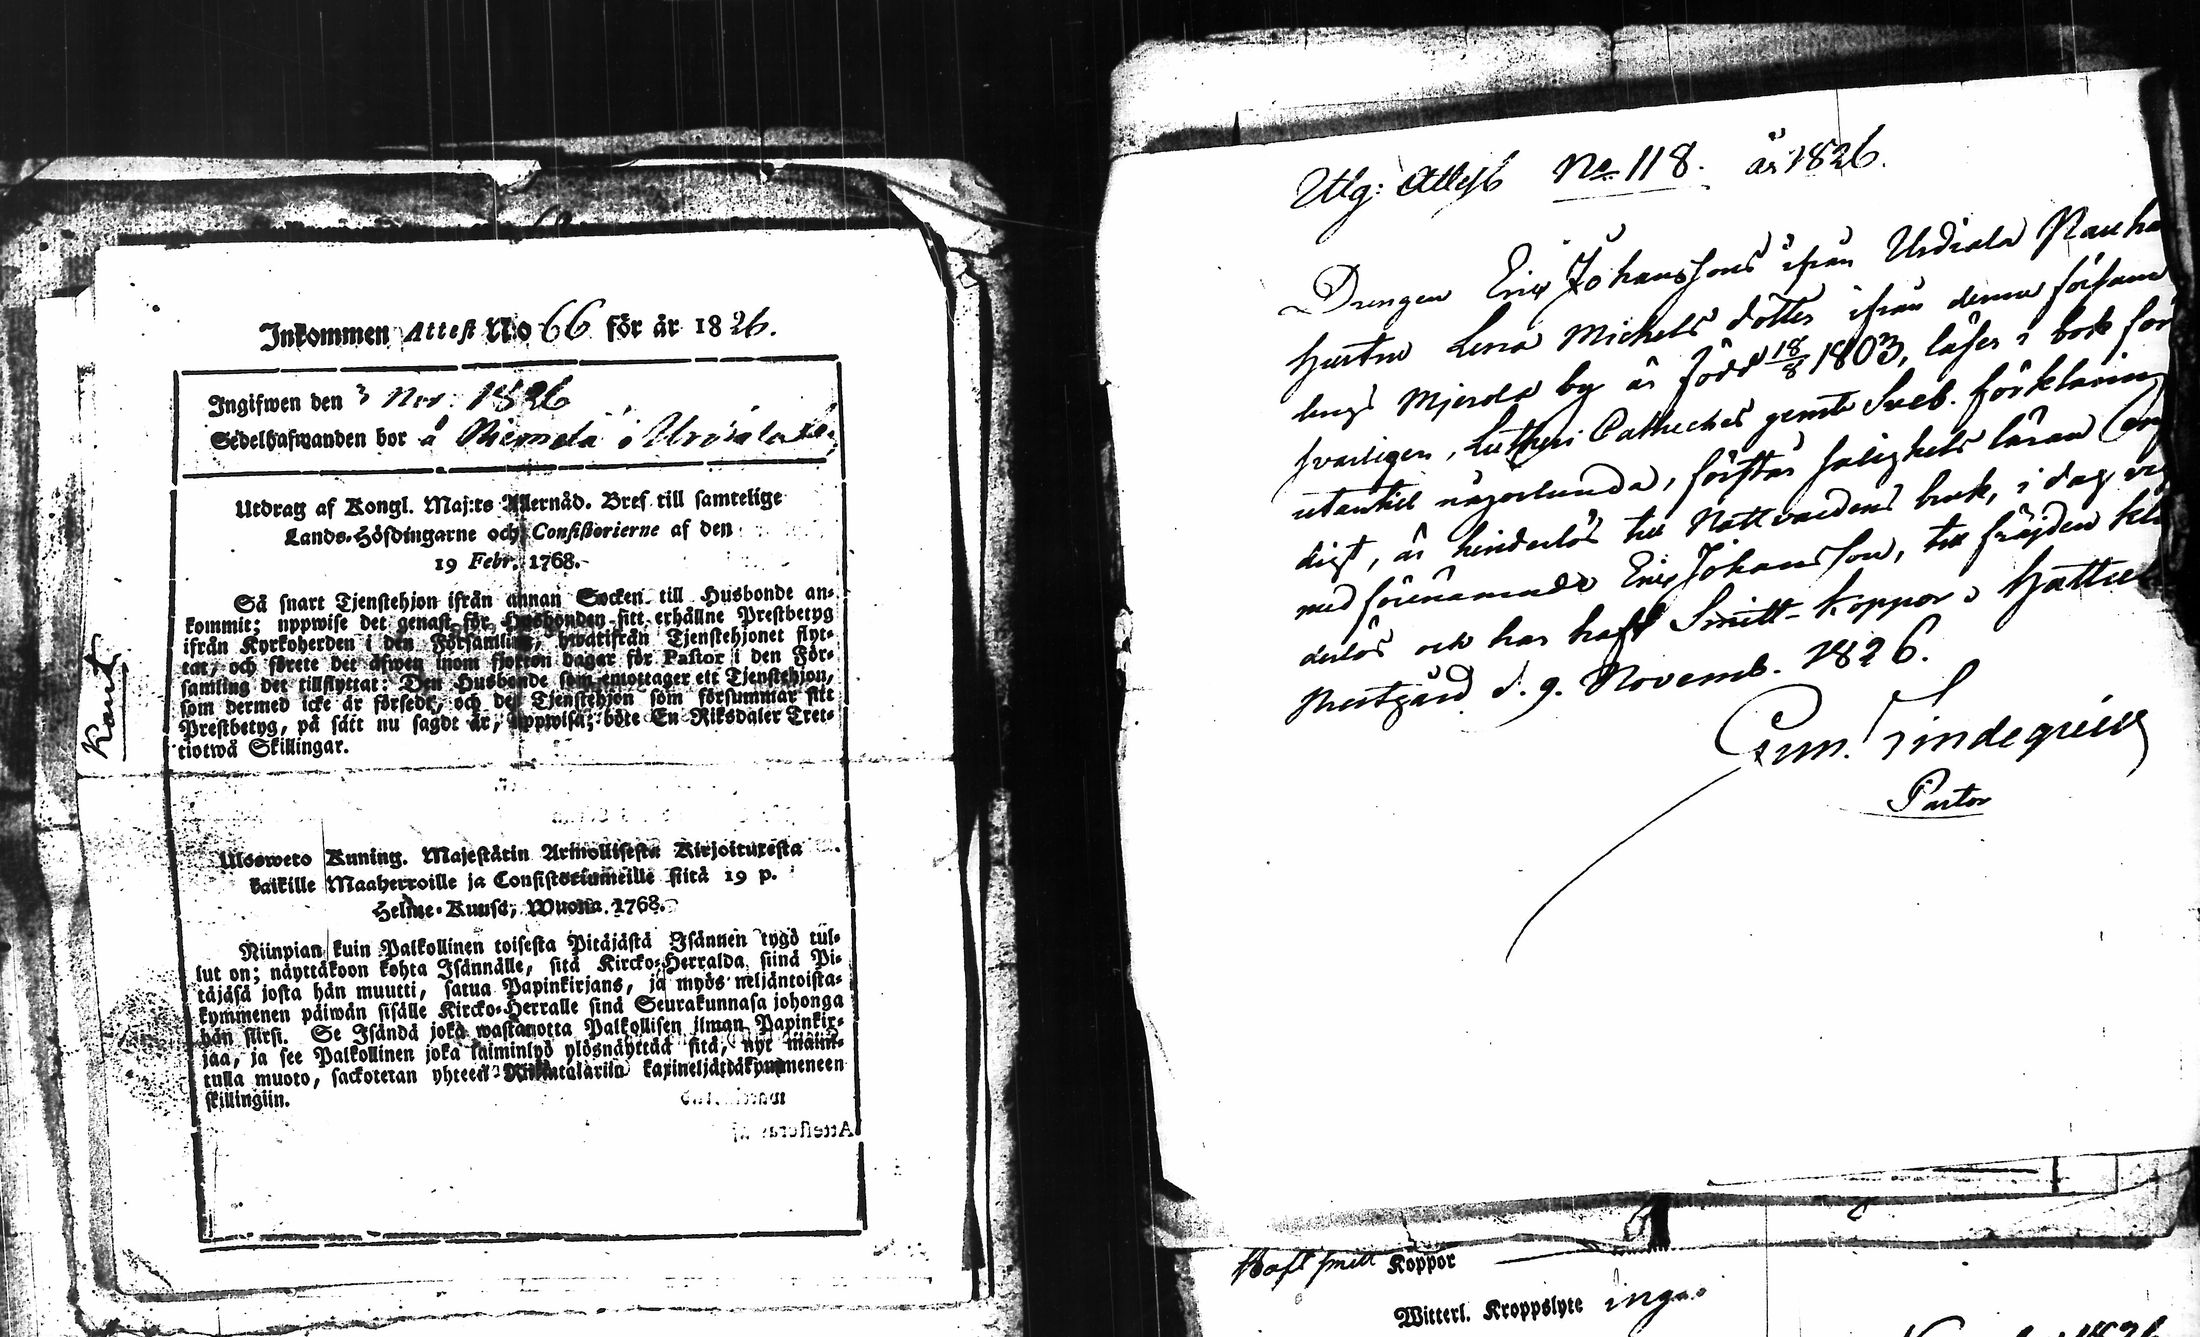 Inkommen Attest No 66 för år 1826.
Ingifwen den 3 Nov. 1826
Sedelhafwanden bor å Niemelä i Urdiala
Utdrag af Kongl. Maj:ts Allernåd. Bref till samtelige
Lands-Höfdingarne och Consistorierne af den
19 Febr. 1768.
Så snart Tjenstehjon ifrån annan Socken till Husbonde an-
kommit; uppwise det genast för Husbonden sitt erhållne Prestbetyg
ifrån Kyrkoherden i den Församling, hwarifrån Tjenstehjonet flyt-
tat, och förete det äfwen inom fjorton dagar för Pastor i den För-
samling det tillflyttat: Den Husbonde som emottager ett Tjenstehjon,
som dermed icke är försedt, och det Tjenstehjon som försummar sitt
Prestbetyg, på sätt nu sagdt är, uppwisa; böte En Riksdaler Tret-
tiotwå Skillingar.
Kant
Ulosweto Kuning. Majestätin Armollisesta Kirjoituxesta
kaikille Maaherroille ja Consistoriumeille siitä 19 p.
Helme-Kuusa, Wuona 1768.
Niinpian kuin Palkollinen toisesta Pitäjästä Isännen tygö tul-
lut on; näyttäkoon kohta Isännälle, sitä Kircko-Herralda siinä Pi-
täjäsä josta hän muutti, satua Papinkirjans, ja myös neljäntoista-
kymmenen päiwän sisälle Kircko-Herralle siinä Seurakunnasa johonga
hän siirsi. Se Isändä joka wastanotta Palkollisen ilman Papinkir-
jaa, ja see Palkollinen joka laiminlyö ylösnäyttää sitä, nyt mainit-
tulla muoto, sackotetan yhteen Riikintalariin kaxineljättäkymmeneen
skillingiin.
Attesteras af
Utg: Attest No 118. år 1826.
Drengen Eric Johanssons ifrån Urdiala Nauha
hustru Lena Michels dotter ifrån denna församl
lings Mjerola by är född 18/8 1803, läser i bok för
svarligen, Lutheri Catheches gemte Sveb. förklaring
utantill någorlunda, förstår salighets läran
digt, är hinderlös till Nattvardens bruk, i dag vig
med förenämnde Eric Johansson, till fräjden kla
derlös och har haft Smitt-koppor. Hattula
Prestgård d. 9. Novemb. 1826.
Gum. Lindegrén
Pastor
Haft smitt Koppor
Witterl. Kroppslyte inga